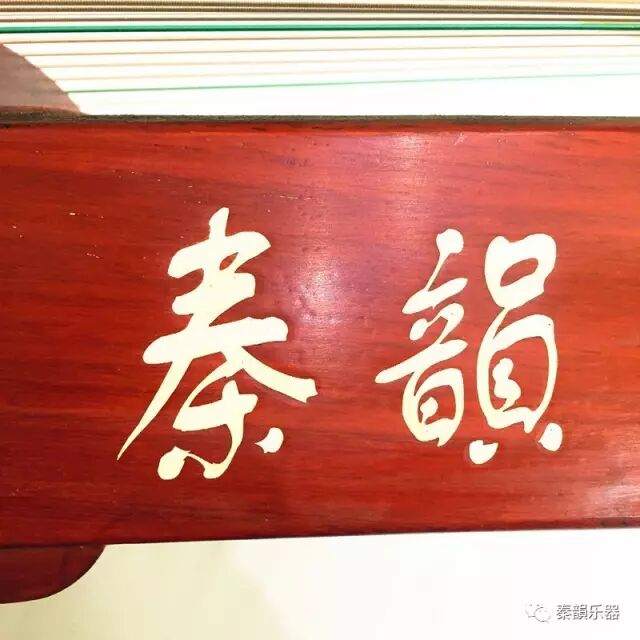 秦韻
秦韻乐器